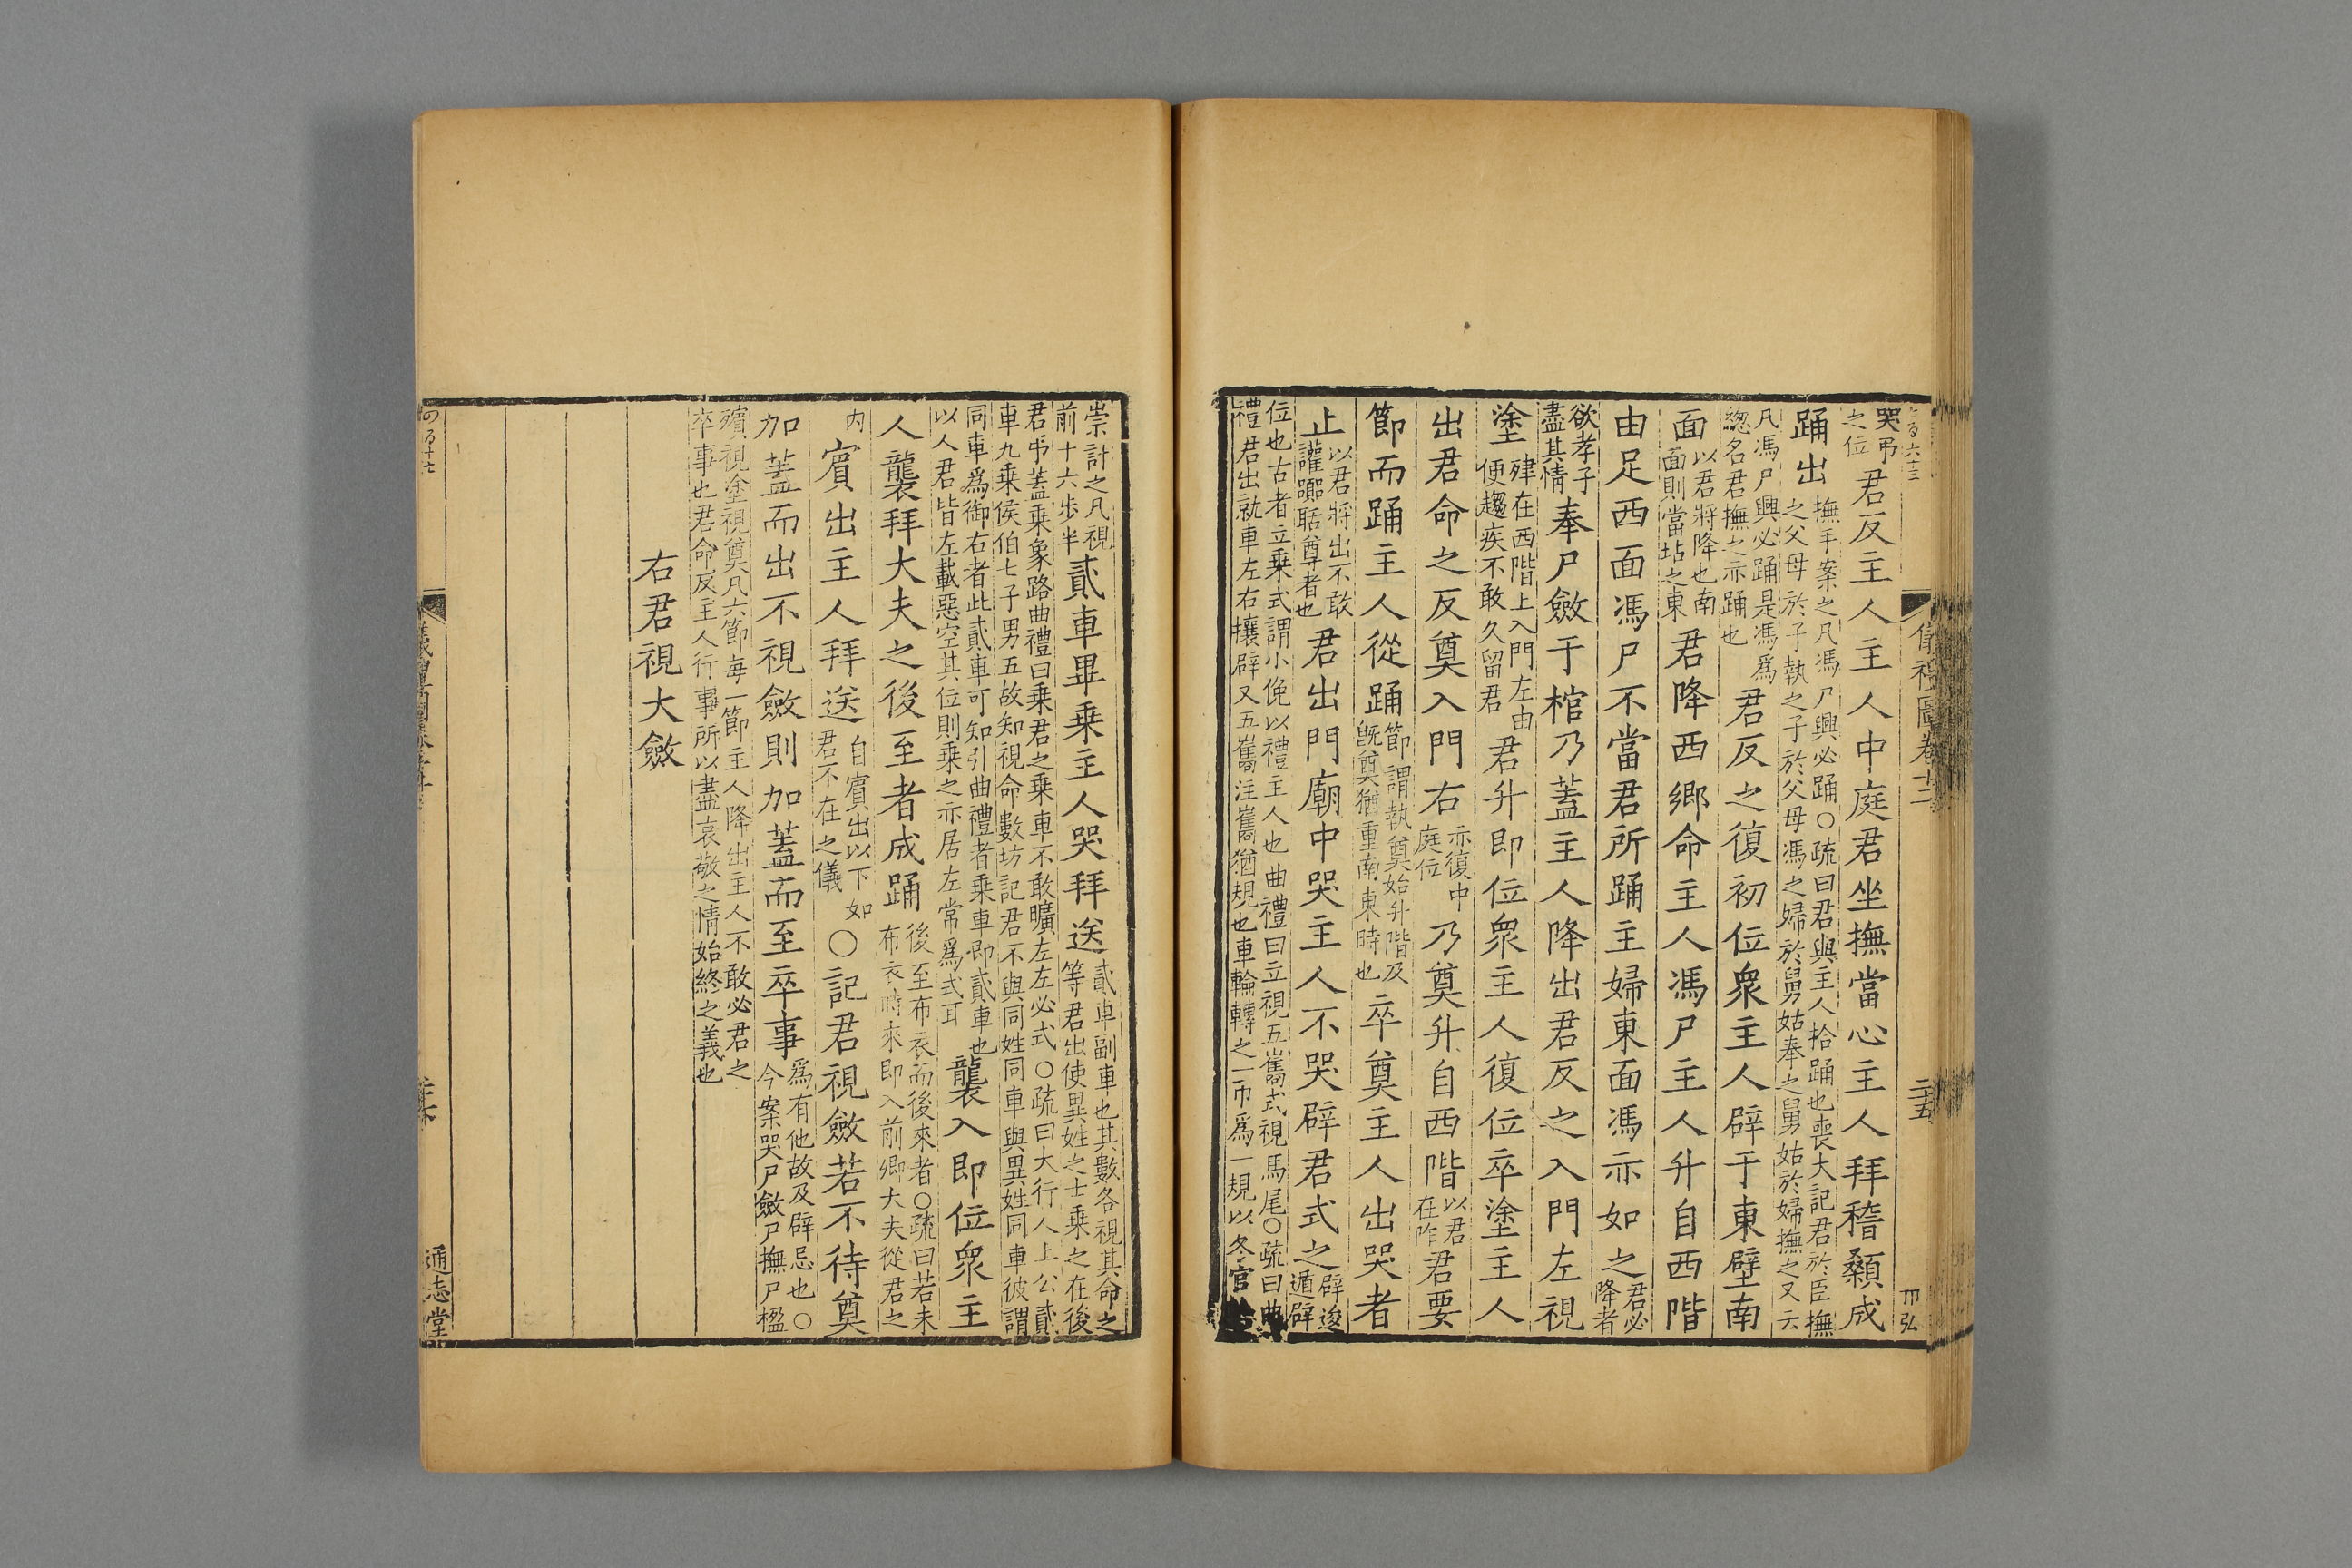 哭弔之位君反主人主人中庭君坐撫當心主人拜稽顙成
踊出撫手案之凡馮尸興必踊○疏曰君與主人拾踊也喪大記君於臣撫之父母於子執之子於父母馮之婦於舅姑奉之舅姑於婦撫之又云
凡馮尸興必踊是馮爲緫名君撫之亦踊也君反之復初位衆主人辟于東壁南
面以君將降也南面則當坫之東君降西鄉命主人馮尸主人升自西階
由足西面馮尸不當君所踊主婦東面馮亦如之君必降者
欲孝子盡其情奉尸斂于棺乃蓋主人降出君反之入門左視
塗肂在西階上入門左由便趨疾不敢久留君君升即位衆主人復位卒塗主人
出君命之反奠入門右亦復中庭位乃奠升自西階以君在阼君要
節而踊主人從踊節謂執奠始升階及旣奠猶重南東時也卒奠主人出哭者
止以君將出不敢讙嚻聒尊者也君出門廟中哭主人不哭辟君式之辟逡遁辟
位也古者立乗式謂小俛以禮主人也曲禮曰立視五巂式視馬尾○疏曰曲禮君出就車左右攘辟又五巂注巂猶規也車輪轉之一帀爲一規以冬官
儀禮圖卷十二
二十五
崇計之凡視前十六步半貳車畢乗主人哭拜送貳車副車也其數各視其命之等君出使異姓之士乗之在後
君弔蓋乗象路曲禮曰乗君之乗車不敢曠左左必式○疏曰大行人上公貳車九乗侯伯七子男五故知視命數坊記君不與同姓同車與異姓同車彼謂
同車爲御右者此貳車可知引曲禮者乗車即貳車也以人君皆左載惡空其位則乗之亦居左常爲式耳襲入即位衆主
人襲拜大夫之後至者成踊後至布衣而後來者○疏曰若未布衣時來即入前卿大夫從君之
内賓出主人拜送自賓出以下如君不在之儀○記君視斂若不待奠
加蓋而出不視斂則加蓋而至卒事爲有他故及辟忌也○今案哭尸斂尸撫尸楹
殯視塗視奠凡六節每一節主人降出主人不敢必君之卒事也君命反主人行事所以盡哀敬之情始終之義也
右君視大斂
通志堂